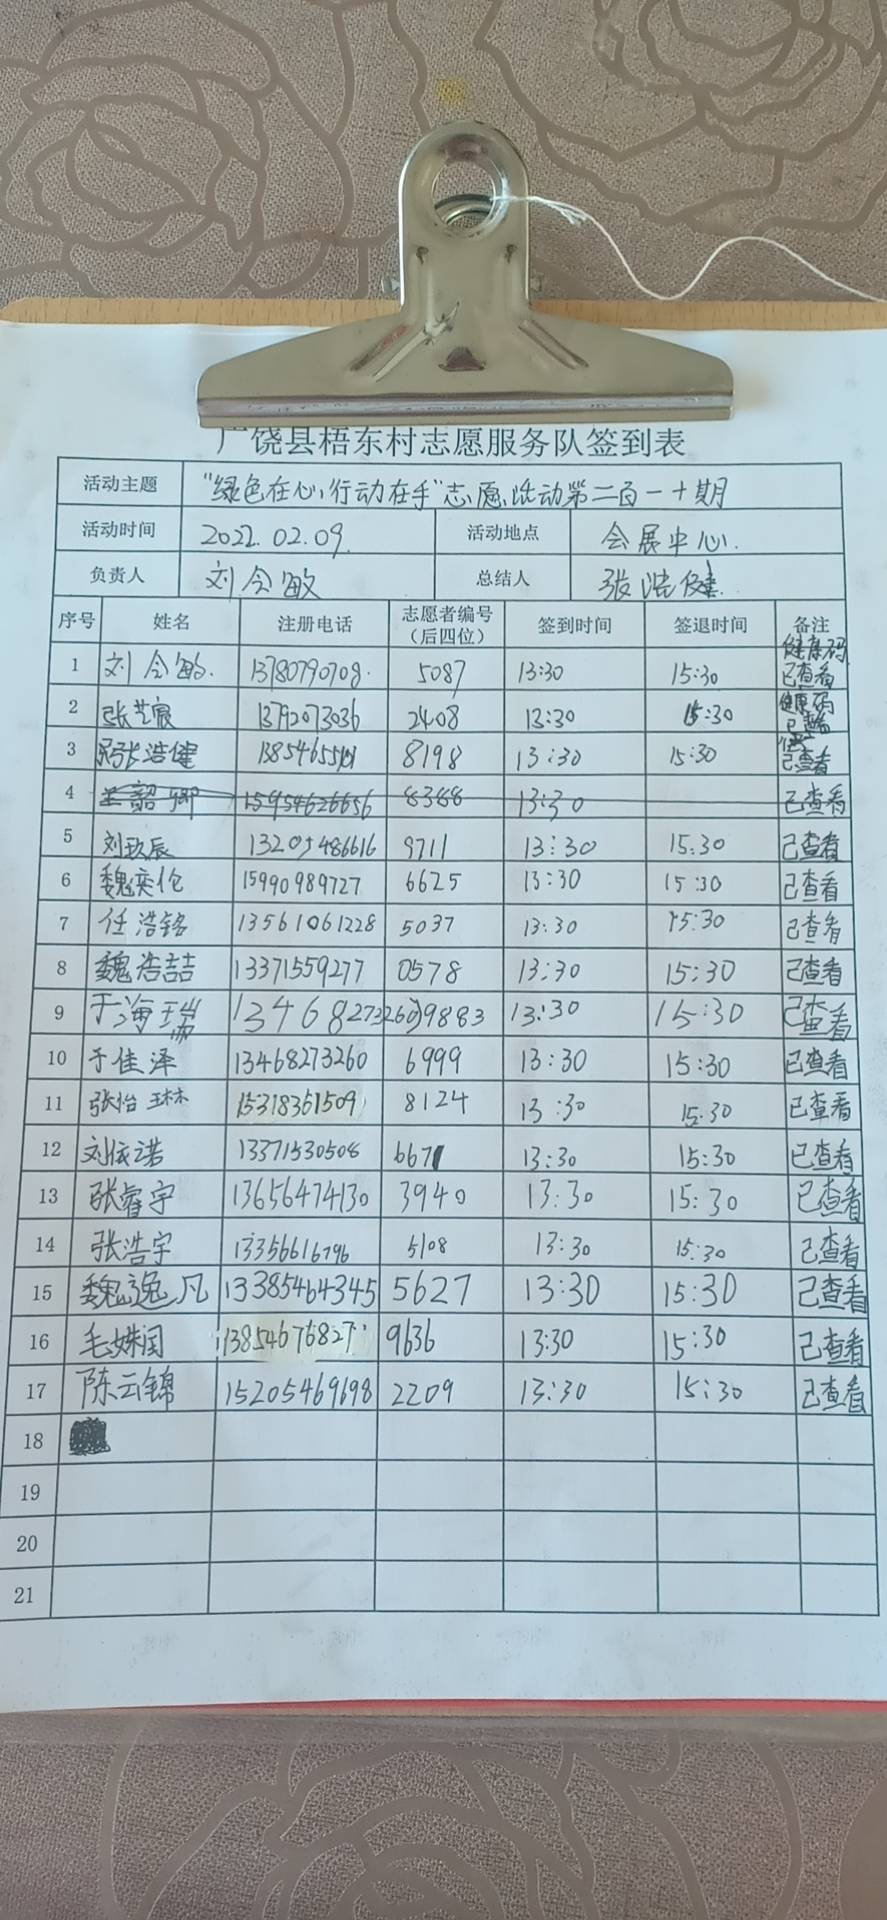 广饶县梧东村志愿服务队签到表
活动主题 "绿色在心,行动在手"志愿活动第二百一十期
活动时间 2022.02.09. 活动地点 会展中心.
负责人 刘会敏 总结人 张浩健
序号 姓名 注册电话 志愿者编号（后四位） 签到时间 签退时间 备注
1 刘会敏. 13780790708. 5087 13:30 15:30 健康码已查看
2 张芷宸 13792073036 2408 13:30 15:30 健康码已查看
3 张浩健 8198 13:30 15:30 已查看
4 15954626656 8388 13:30 已查看
5 刘玖辰 13205486616 9711 13:30 15:30 已查看
6 魏奕伦 15990989727 6625 13:30 15:30 已查看
7 任浩铭 13561061228 5037 13:30 15:30 已查看
8 魏浩喆 13371559277 0578 13:30 15:30 已查看
9 于海瑞 13468273260 9883 13:30 15:30 已查看
10 于佳泽 13468273260 6999 13:30 15:30 已查看
11 张怡琳 15318361509 8124 13:30 15:30 已查看
12 刘依诺 13371530508 6671 13:30 15:30 已查看
13 张睿宇 13656474130 3940 13:30 15:30 已查看
14 张浩宇 13356616796 5108 13:30 15:30 已查看
15 魏逸凡 13385464345 5627 13:30 15:30 已查看
16 毛姝闰 13854676827 9636 13:30 15:30 已查看
17 陈云锦 15205469698 2209 13:30 15:30 已查看
18
19
20
21